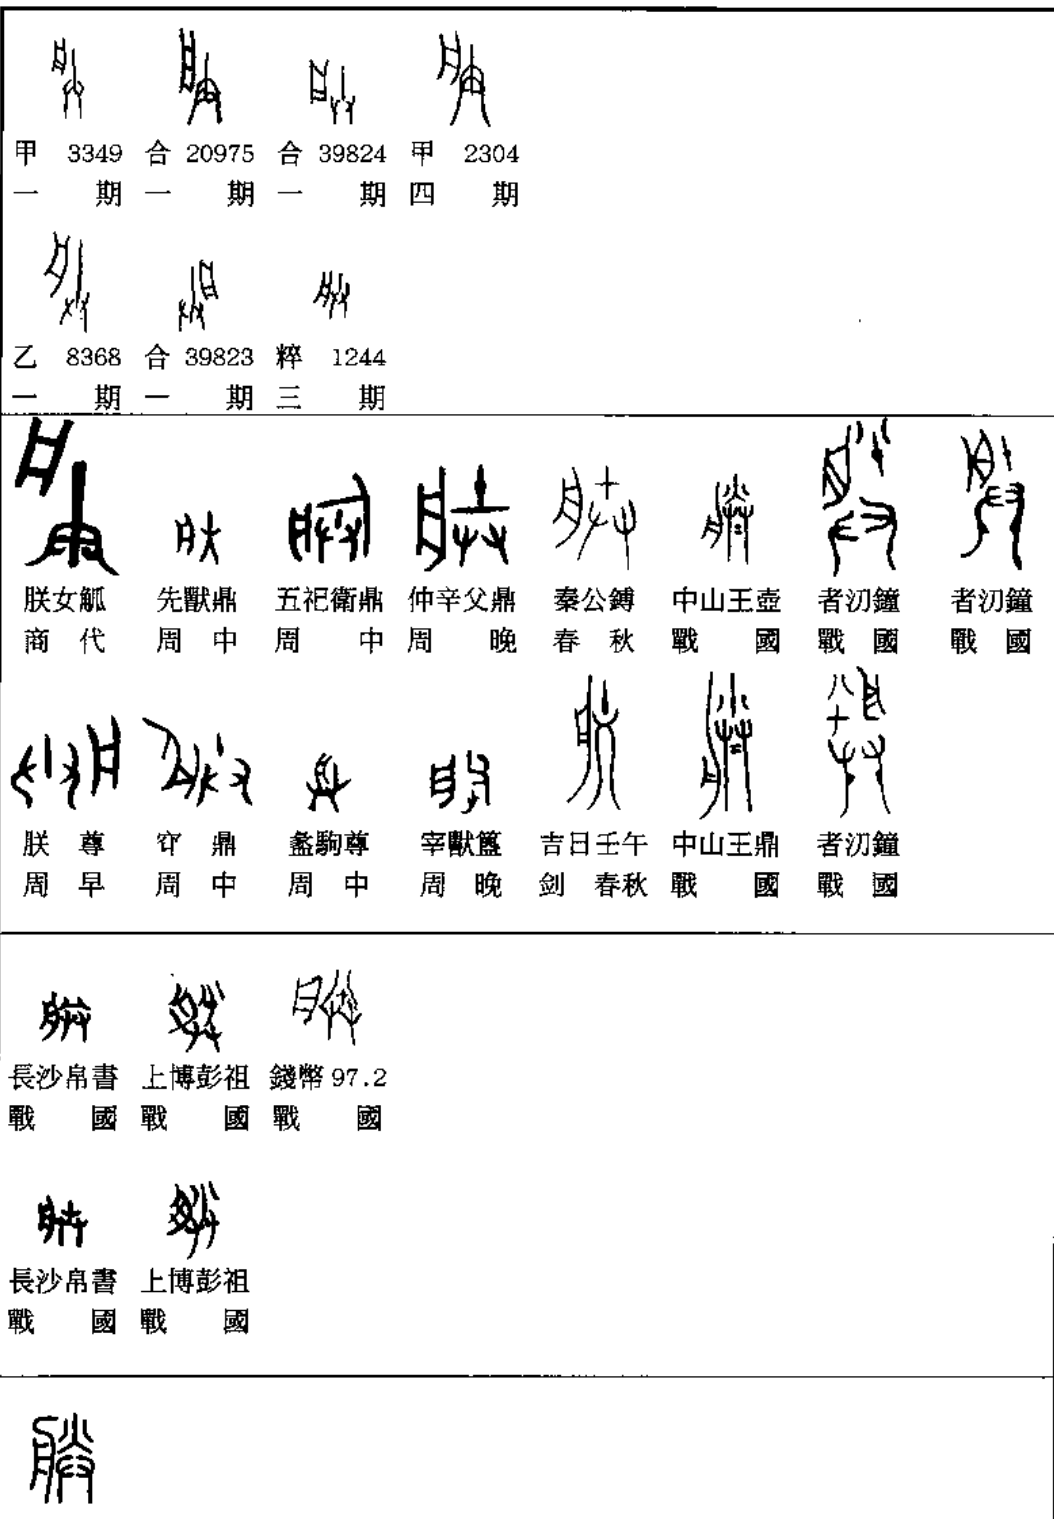 甲 3349 合 20975 合 39824 甲 2304
一期 一期 一期 四期
乙 8368 合 39823 粹 1244
一期 一期 三期
朕女觚 先獸鼎 五祀衛鼎 仲辛父鼎 秦公鎛 中山王壺 者汈鐘 者汈鐘
商代 周中 周中 周晚 春秋 戰國 戰國 戰國
朕尊 鼎 盠駒尊 宰獸簋 吉日壬午 中山王鼎 者汈鐘
周早 周中 周中 周晚 劍 春秋 戰國 戰國
長沙帛書 上博彭祖 錢幣 97.2
戰國 戰國 戰國
長沙帛書 上博彭祖
戰國 戰國